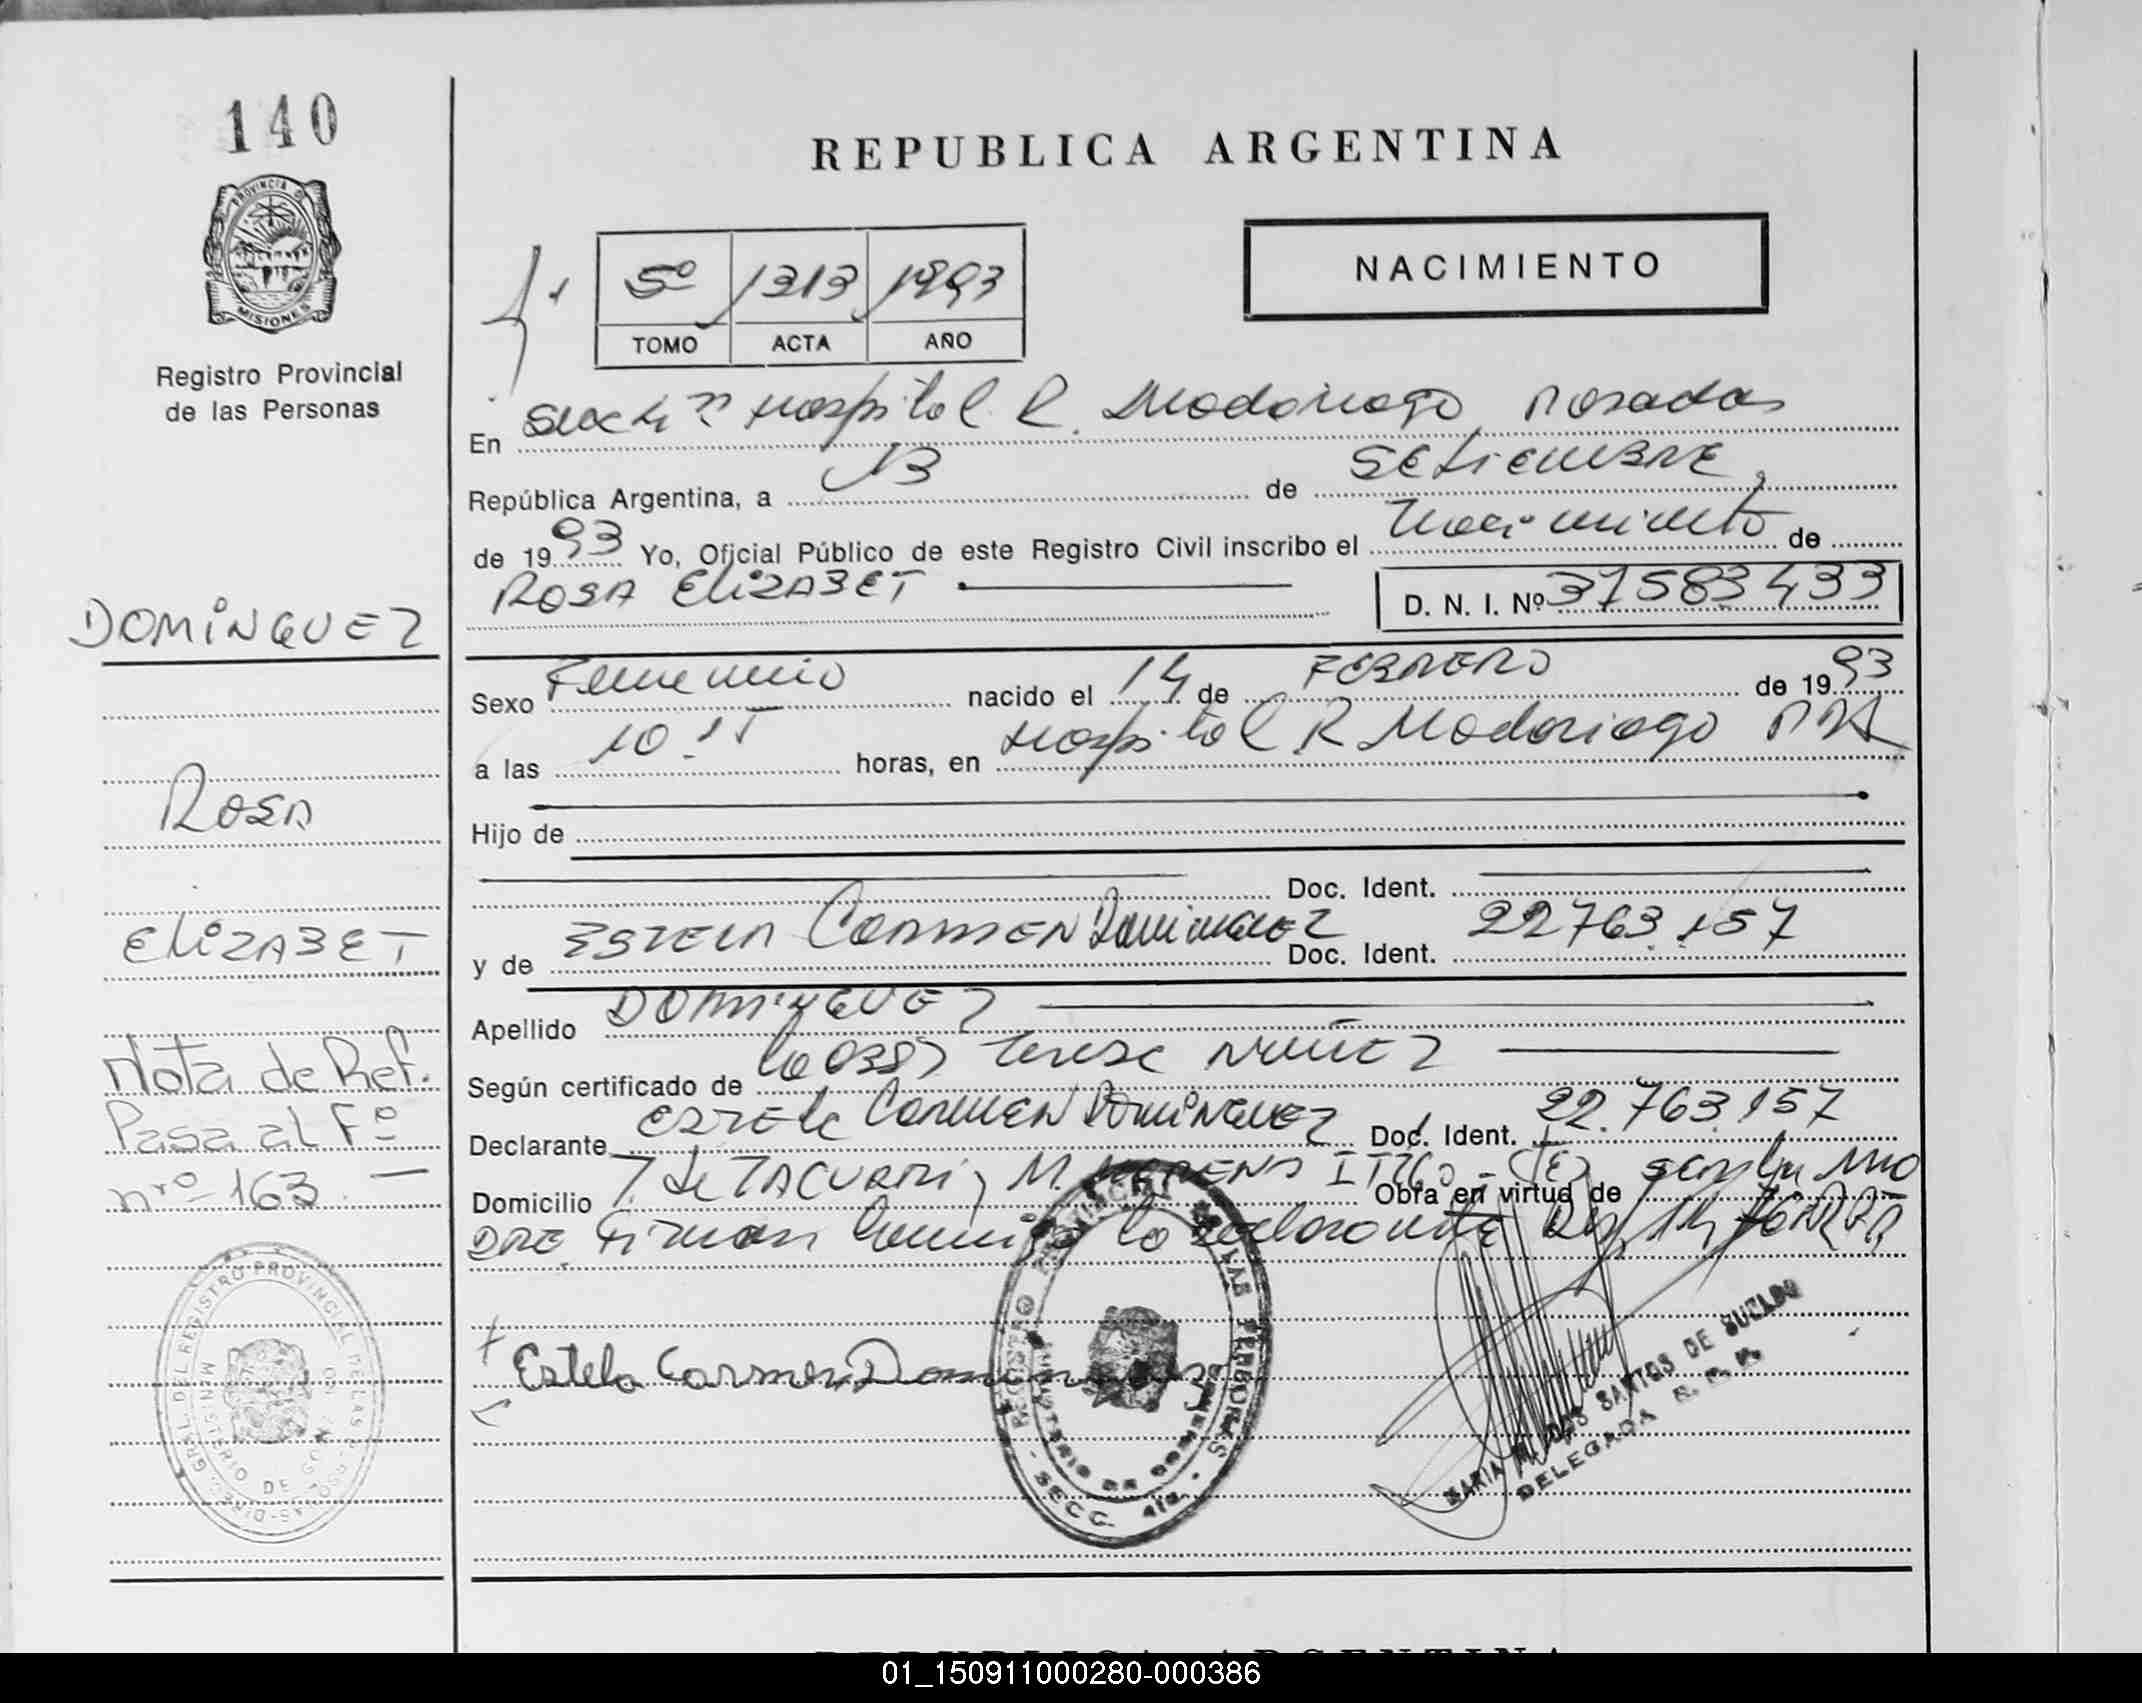 140
PROVINCIA D
MISIONES
Registro Provincial
de las Personas
REPUBLICA ARGENTINA
NACIMIENTO
5º 1313 1993
TOMO ACTA AÑO
En Hospital R. Madariaga Posadas
República Argentina, a 13 de SETIEMBRE
de 1993 Yo, Oficial Público de este Registro Civil inscribo el Nacimiento de
ROSA ELIZABET D. N. I. Nº 37583433
DOMINGUEZ
Sexo Femenino nacido el 14 de FEBRERO de 1993
a las 10.15 horas, en Hospital R Madariaga
ROSA
Hijo de
Doc. Ident.
ELIZABET
y de ESTELA CARMEN Dominguez Doc. Ident. 22763.157
Apellido DOMINGUEZ
Según certificado de Terese NUÑEZ
Declarante ESTELA CARMEN DOMINGUEZ Doc. Ident. 22.763.157
Domicilio T. de TACUARI y M. MORENO Obra en virtud de
la declarante
Nota de Ref.
Pasa al Fº
nrº 163. —
Estela Carmen Dominguez
REGISTRO PROVINCIAL DE LAS PERSONAS
MINISTERIO DE GOBIERNO
SECC. 4ta.
SANTOS DE
DELEGADA R. P. P.
01_150911000280-000386